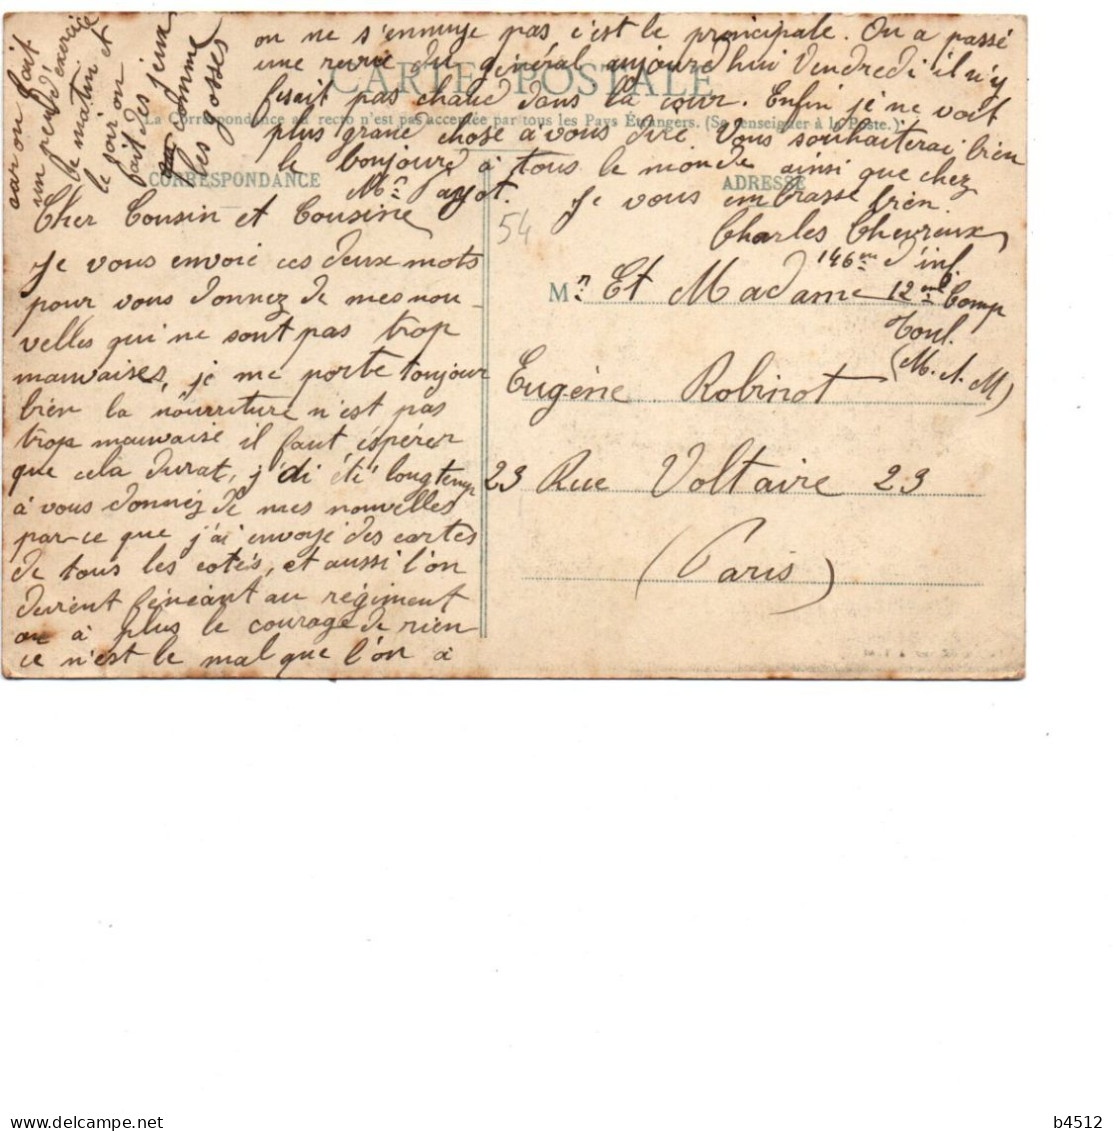 CARTE POSTALE
La Correspondance au recto n'est pas acceptée par tous les Pays Étrangers. (Se renseigner à la Poste.)
CORRESPONDANCE
ADRESSE
Cher Cousin et Cousine
Je vous envoie ces deux mots
pour vous donnez de mes nou-
velles qui ne sont pas trop
mauvaises, je me porte toujour
bien la nourriture n'est pas
trop mauvaise il faut éspérer
que cela durat, j'di été longtemp
à vous donnéz de mes nouvelles
par-ce que j'ai envoyé des cartes
de tous les cotés, et aussi l'on
devient féneant au régiment
on à plus le courage de rien
ce n'est le mal que l'on à
car on fait
un peu d'exercice
le matin et
le soir on
fait des jeux
comme
les gosses
on ne s'ennuye pas c'est le principale. On a passé
une revue du général aujourd'hui Vendredi il n'y
fesait pas chaud dans la cour. Enfin je ne voit
plus grand chose à vous dire Vous souhaiterai bien
le bonjour à tous le monde ainsi que chez
Mr Payot. Je vous embrasse bien.
Charles Chevreux
146me d'inf.
12me Comp
Toul.
(M. et M)
54
Mr. Et Madame
Eugène Robinot
23 Rue Voltaire 23
(Paris)
b4512